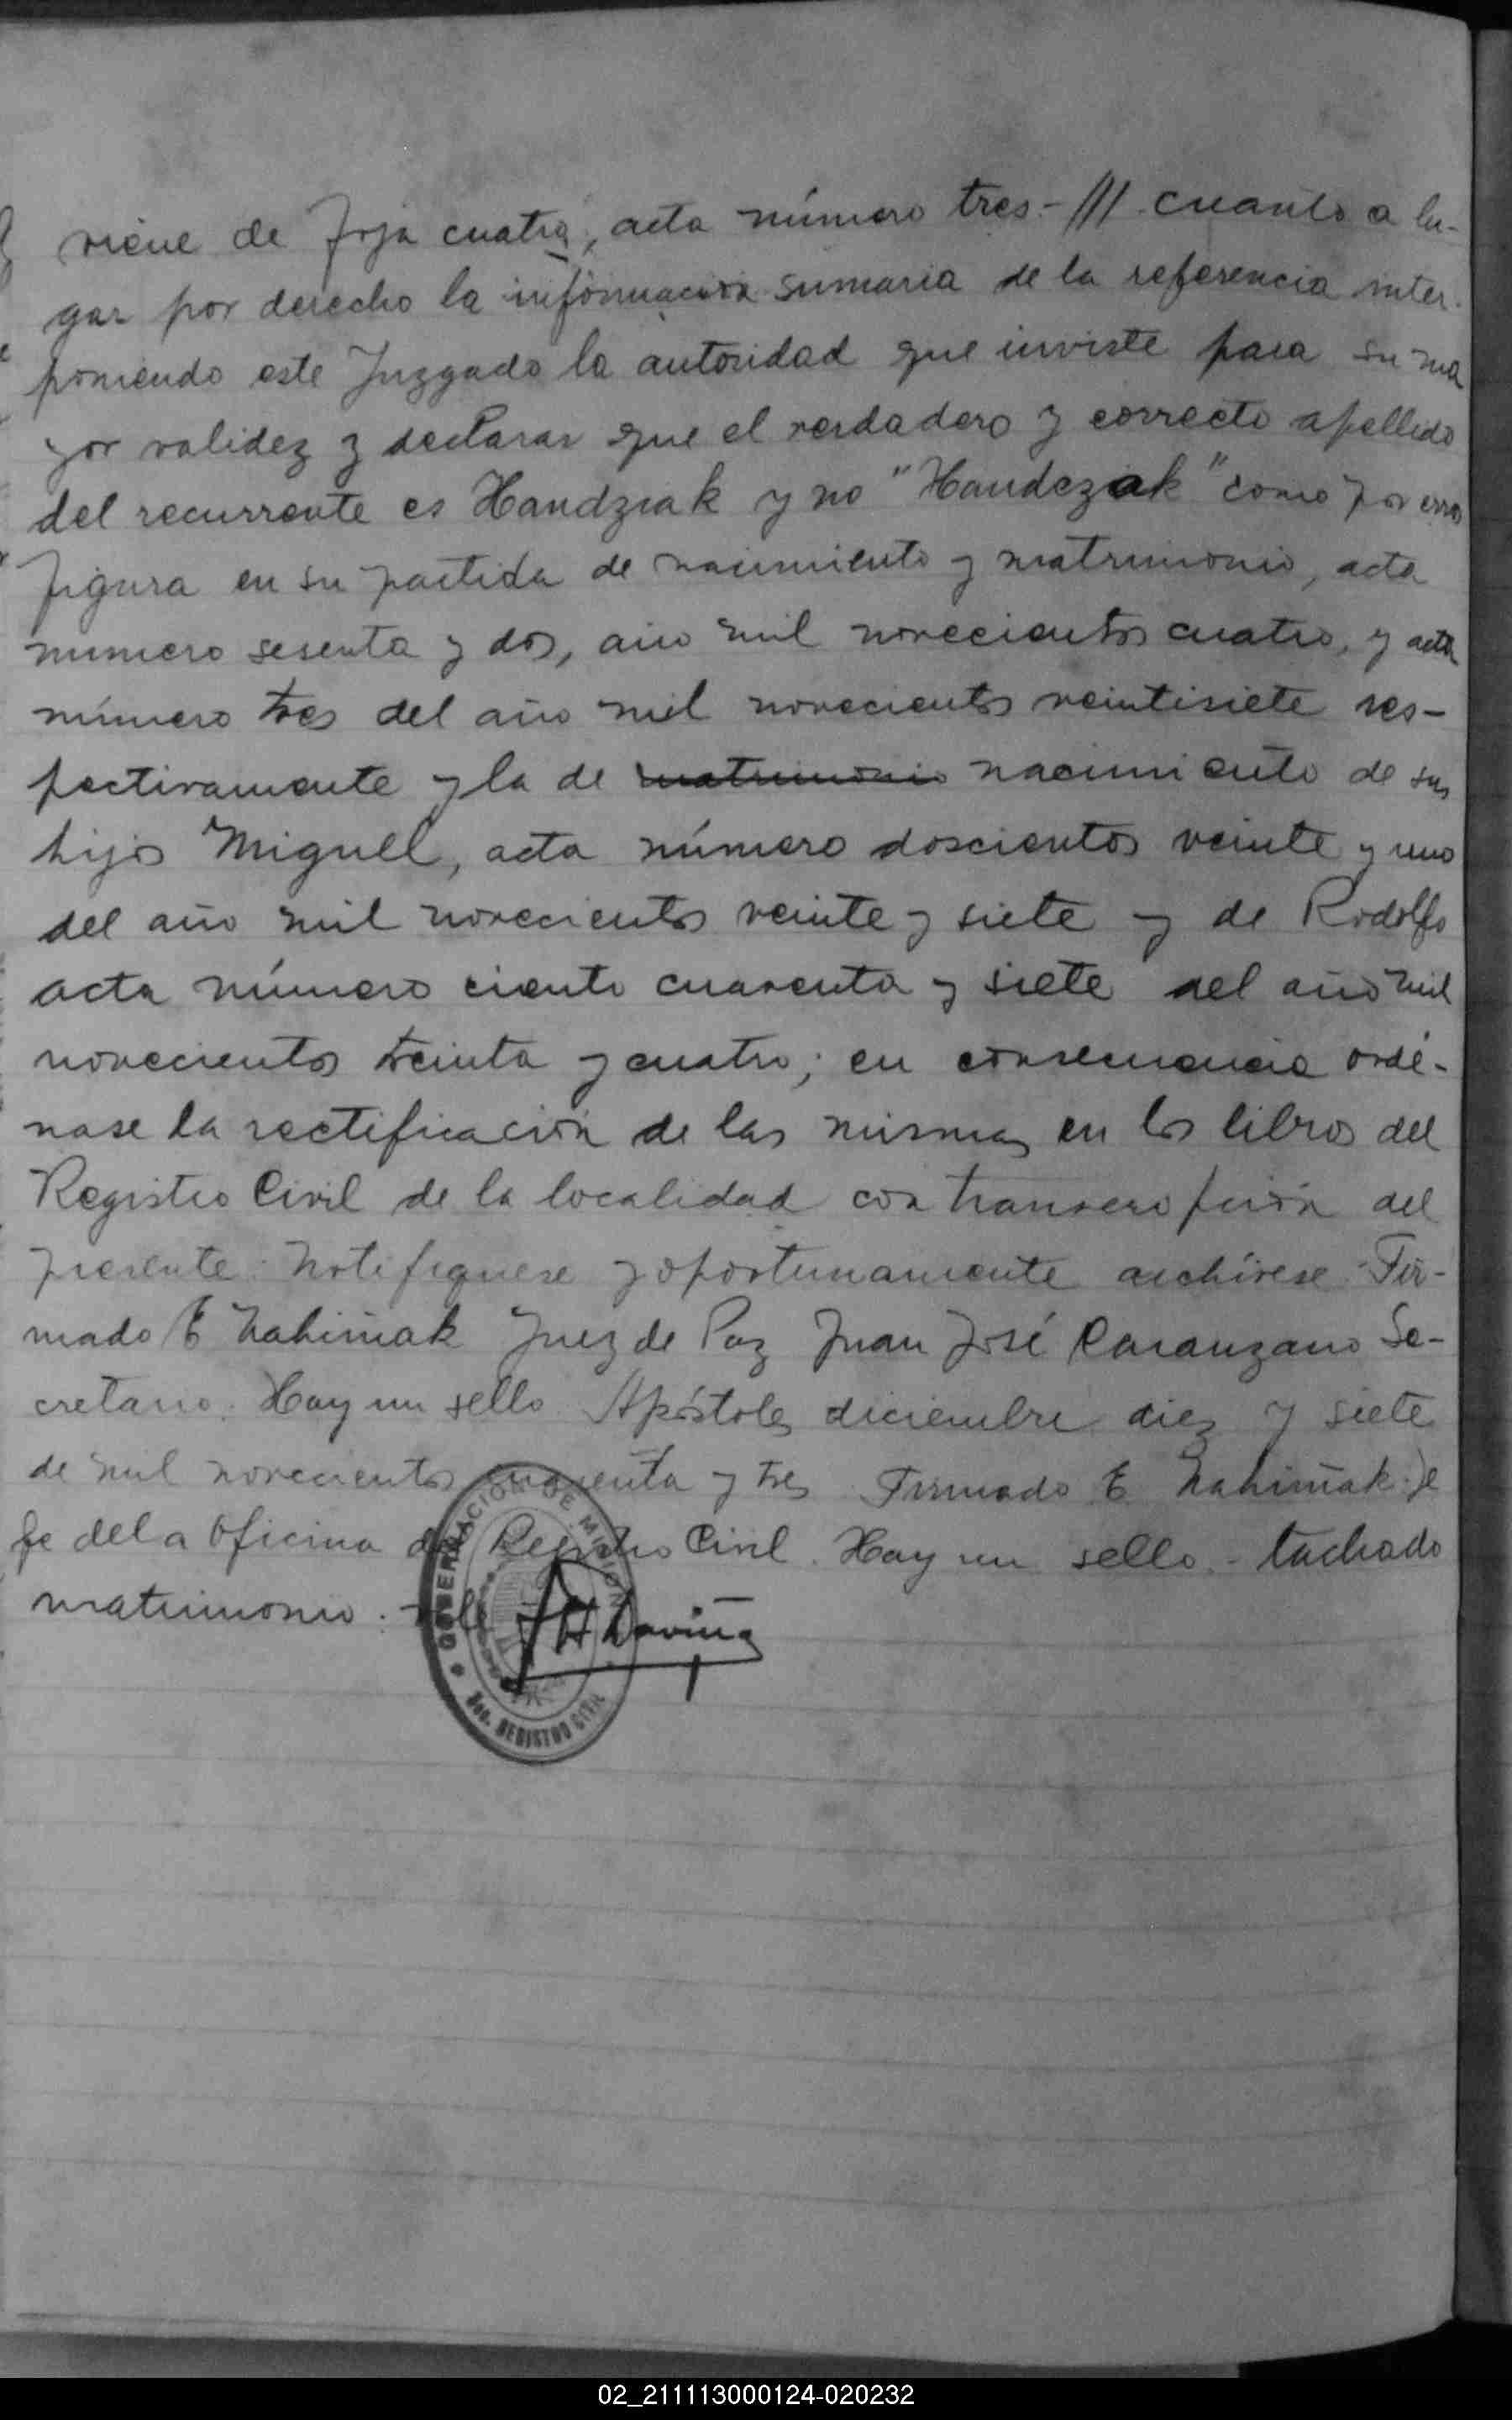 viene de foja cuatro, acta número tres.- /// cuanto a lu-
gar por derecho la información sumaria de la referencia inter-
poniendo este Juzgado la autoridad que inviste para su ma
yor validez y declarar que el verdadero y correcto apellido
del recurrente es Handziak y no "Handczak" como por error
figura en su partida de nacimiento y matrimonio, acta
numero sesenta y dos, año mil novecientos cuatro, y acta
número tres del año mil novecientos veintisiete res-
pectivamente y la de matrimonio nacimiento de sus
hijos Miguel, acta número doscientos veinte y uno
del año mil novecientos veinte y siete y de Rodolfo
acta número ciento cuarenta y siete del año mil
novecientos treinta y cuatro; en consecuencia ordé-
nase la rectificación de las mismas en los libros del
Registro Civil de la localidad con transcropción del
presente. Notifiquese y oportunamente archívese. Fir-
mado E Nahimak Juez de Paz Juan José Caranzano Se-
cretario. Hay un sello Apóstoles diciembre diez y siete
de mil novecientos cuarenta y tres Firmado E Nahimak Je
fe de la Oficina del Registro Civil. Hay un sello. - tachado
matrimonio.
GOBERNACION DE MISIONES
Sec. REGISTRO CIVIL